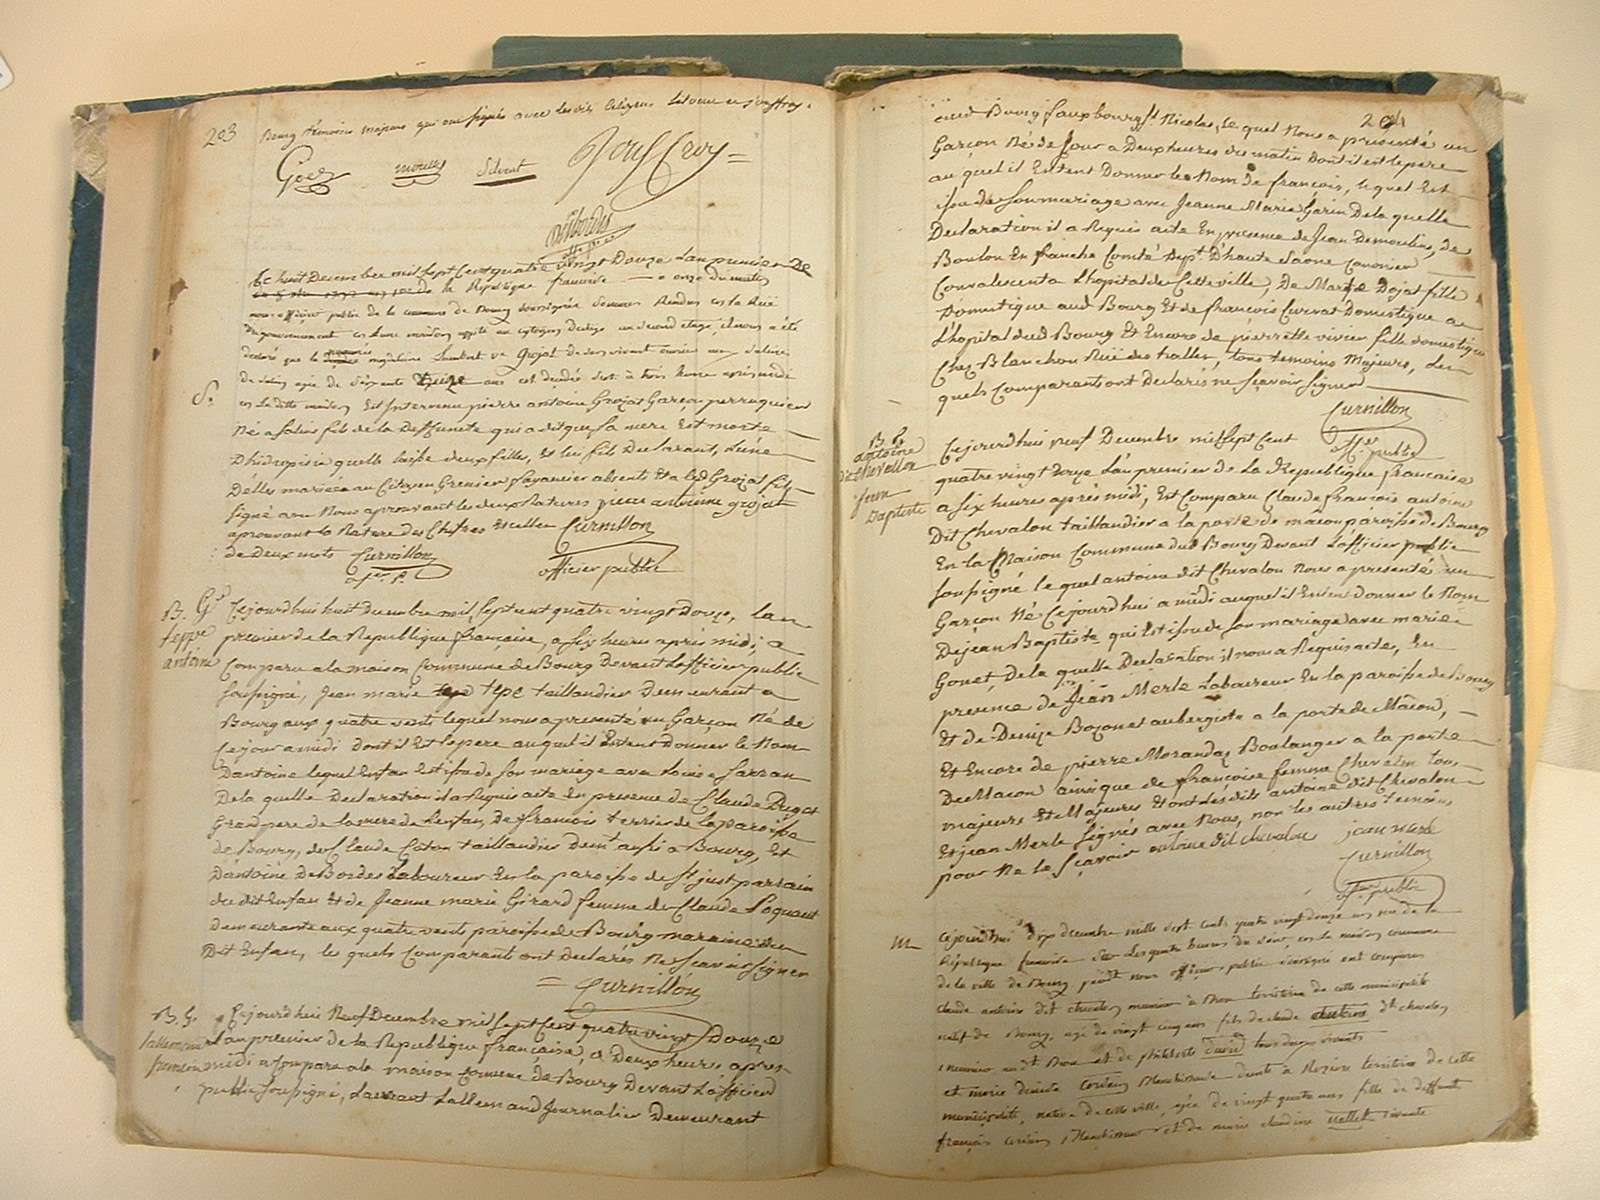 203
Bourg témoins majeurs qui ont signés avec lesdits Citoyens
Silvent
Ce huit Decembre mil sept Cent quatre vingt Douze Lan premier De
de la République francaise onze du matin
nous officier public de la commune de Bourg soussigné sommes Rendus en la Rue
un second etage et nous a été
déclaré que la magdelaine ve Grojat de son vivant
de salins agée de soixante treize ans est decedée à trois heures après midi
en La ditte maison Est Intervenu pierre antoine Grojat Garçon perruquier
Né a Salins fils de la Deffuncte qui a dit que Sa mere Est morte
D'hidropisie quelle laisse deux filles, et lui fils Declarant, L'une
Delles mariée au Citoyen Grenier absents et a led Grojat fils
signé avec Nous aprouvant les deux Ratures pierre antoine grojat
aprouvant la Rature des Chifres et celle Curnillon
de Deux mots Curnillon officier public
B. G.
teppe
antoine
Cejourdhui huit decembre mil sept cent quatre vingt Douze, lan
premier de la Republique française, a six heures après midi, a
Comparu a la maison Commune de Bourg Devant Lofficier public
soussigné, Jean marie tepe taillandier demeurant a
Bourg aux quatre vents lequel nous a presenté un Garçon Né de
Ce jour a midi dont il Est le pere auquel il Entent Donner le Nom
D'antoine lequel Enfan est issu de son mariage avec Louise
De la quelle Declaration il a Requis acte En presence de Claude
Grand pere de la mere de Lenfan, de francois terrier de la paroisse
de Bourg, de Claude Caton taillandier demt aussi a Bourg, Et
D'antoine De Bordes Laboureur En la paroisse de St just parrain
du dit Enfan Et de Jeanne marie Girard femme de Claude
demeurante aux quatre vents paroisse de Bourg maraine du
Dit Enfan, les quels Comparants ont Declarés Ne scavoir signer
Curnillon
B. G.
Lallemand
Cejourdhui Neuf Decembre mil sept Cent quatre vingt Douze
Lan premier de la Republique française, a Deux heures apres
midi a Comparu a la maison Commune de Bourg Devant L'officier
public soussigné, Laurant Lallemand Journalier Demeurant
204
aud Bourg fauxbourg St Nicolas, le quel Nous a presenté un
Garçon Né de ce Jour a Deux heures du matin Dont il est le pere
au quel il Entent Donner le Nom De francois, lequel Est
issu de son mariage avec Jeanne Marie Garin De la quelle
Declaration il a Requis acte En presence de Jean Demoulins, de
Boulon En franche Comté Dept D'haute Saone Canonier
Convalescent a L'hopital de Cette ville, De Marie Dojat fille
Domestique aud Bourg Et de francois Curvat Domestique a
L'hopital dud Bourg Et Encore de pierrette vivier fille domestique
Chez Blanchon Rue des halles, tous temoins Majeurs, les
quels Comparants ont Declarés ne sçavoir signer
Curnillon
offer public
B. G.
antoine
dit Chevallon
Jean
Baptiste
Cejourdhui neuf Decembre mil sept Cent
quatre vingt douze L'an premier de La Republique francaise
a six heures après midi, Est Comparu Claude francois antoine
Dit Chevalon taillandier a la porte de mâcon paroisse de Bourg
En la Maison Commune dud Bourg Devant L'officier public
soussigné le quel antoine dit Chevalon Nous a presenté un
Garçon Né Cejourdhui a midi auquel il Entent donner le Nom
De jean Baptiste qui Est issu de son mariage avec marie
Gonet, De la quelle Declaration il nous a Requis acte, En
presence de Jean Merle Laboureur En la paroisse de Bourg
Et de Denize Boconet aubergiste a la porte de Macon,
Et Encore de pierre Morandas Boulanger a la porte
De Macon ainsi que de françoise femme Chevalon tous
majeurs Et Majeures Et ont Lésdits antoine dit Chevalon
Et jean Merle Signés avec Nous, non les autres temoins
pour Ne le Sçavoir antoine dit chevalon jean merle
Curnillon
offer public
m
Cejourdhui dix decembre mille sept cent quatre vingt douze an 1er de la
République francaise sur les quatre heures du soir, en la maison commune
de la ville de Bourg pardt nous officier public soussigné ont comparus
claude antoine dit chevalon meunier à Brou territoire de cette municipalité
natif de Bourg, agé de vingt cinq ans fils de claude antoine dit chevalon
meunier aud Brou et de philiberte David tous deux vivants
et marie territoire de cette
municipalité, native de cette ville, agée de vingt quatre ans fille de deffunt
françois et de marie claudine vivante